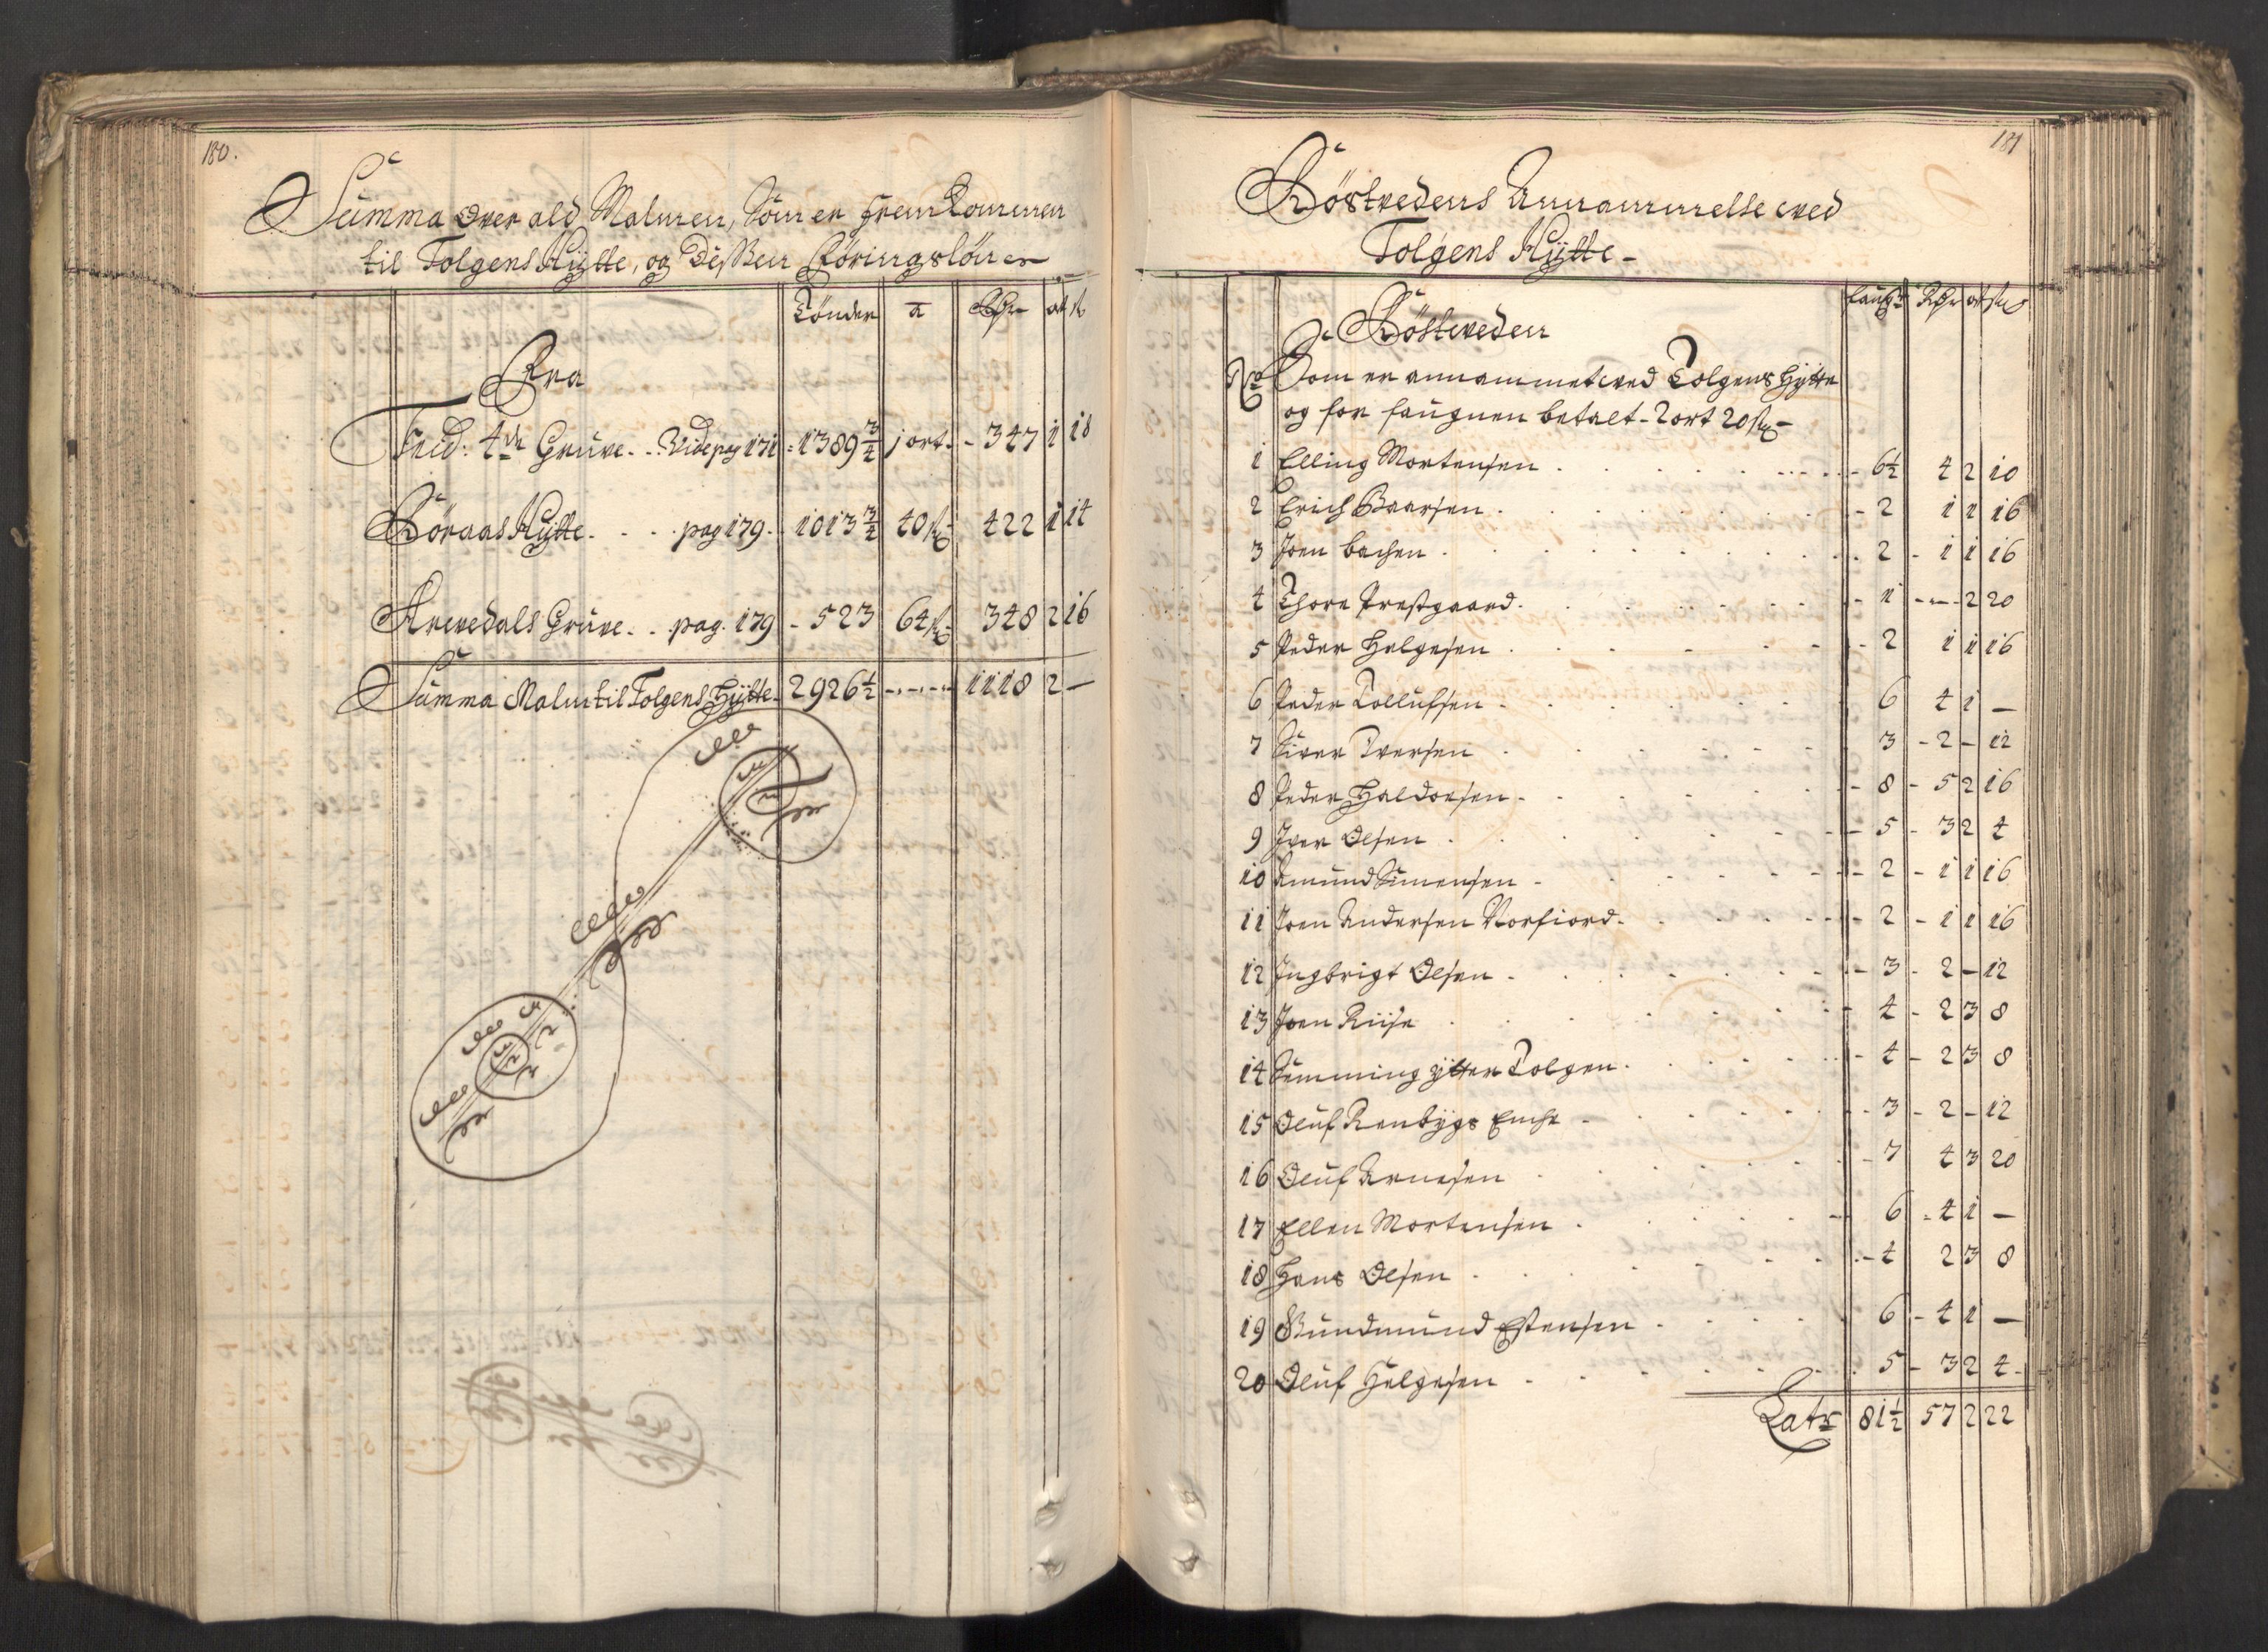 180.
Summa Over ald Malmen, Som er fremkommen
til Tolgens Hÿtte, og Deßen Kiöringslön
Tönder a Rdr ort ß
Fra
Frid: 4de Gruve. .. Vide pag 171 - 1389 3/4 j ort - 347 1 18
Röraas Hÿtte. . . . pag 179. 1013 3/4 40 ß 422 1 14
Arvedals Gruve. . . pag. 179 - 523 64 ß 348 2 16
Summa Malm til Tolgens Hÿtte. 2926 1/2 1118 2 —
181
Röstvedens Annammelse ved
Tolgens Hÿtte -
faugn Rdr ort ß
Röstveden
No Som er annammet ved Tolgens Hÿtte
og for faugnen betalt - 2 ort 20 ß -
1 Elling Mortensen . . . 6 1/2 4 2 10
2 Erich Baarsen . . . 2 1 1 16
3 Joen bachen . . . 2 - 1 1 16
4 Thore Prestgaard . . . 1 - 2 20
5 Peder Helgesen . . . 2 1 1 16
6 Peder Tollufsen . . . 6 4 1 —
7 Siver Iversen . . . 3 - 2 - 12
8 Peder Haldorsen . . . 8 - 5 2 16
9 Iver Olsen . . . 5 - 3 2 4
10 Amund Simensen . . . 2 - 1 1 16
11 Joen Andersen Vorfiord . . . 2 - 1 1 16
12 Ingbrigt Olsen . . . 3 - 2 - 12
13 Joen Riise . . . 4 - 2 3 8
14 Semming ÿtter Tolgen . . . 4 - 2 3 8
15 Oluf Renbÿgs Enche . . . 3 - 2 - 12
16 Oluf Arnesen . . . 7 4 3 20
17 Ellen Mortensen . . . 6 - 4 1 —
18 Hans Olsen . . . 4 2 3 8
19 Gundmund Estensen . . . 6 - 4 1 —
20 Oluf Helgesen . . . 5 - 3 2 4
Latr 81 1/2 57 2 22